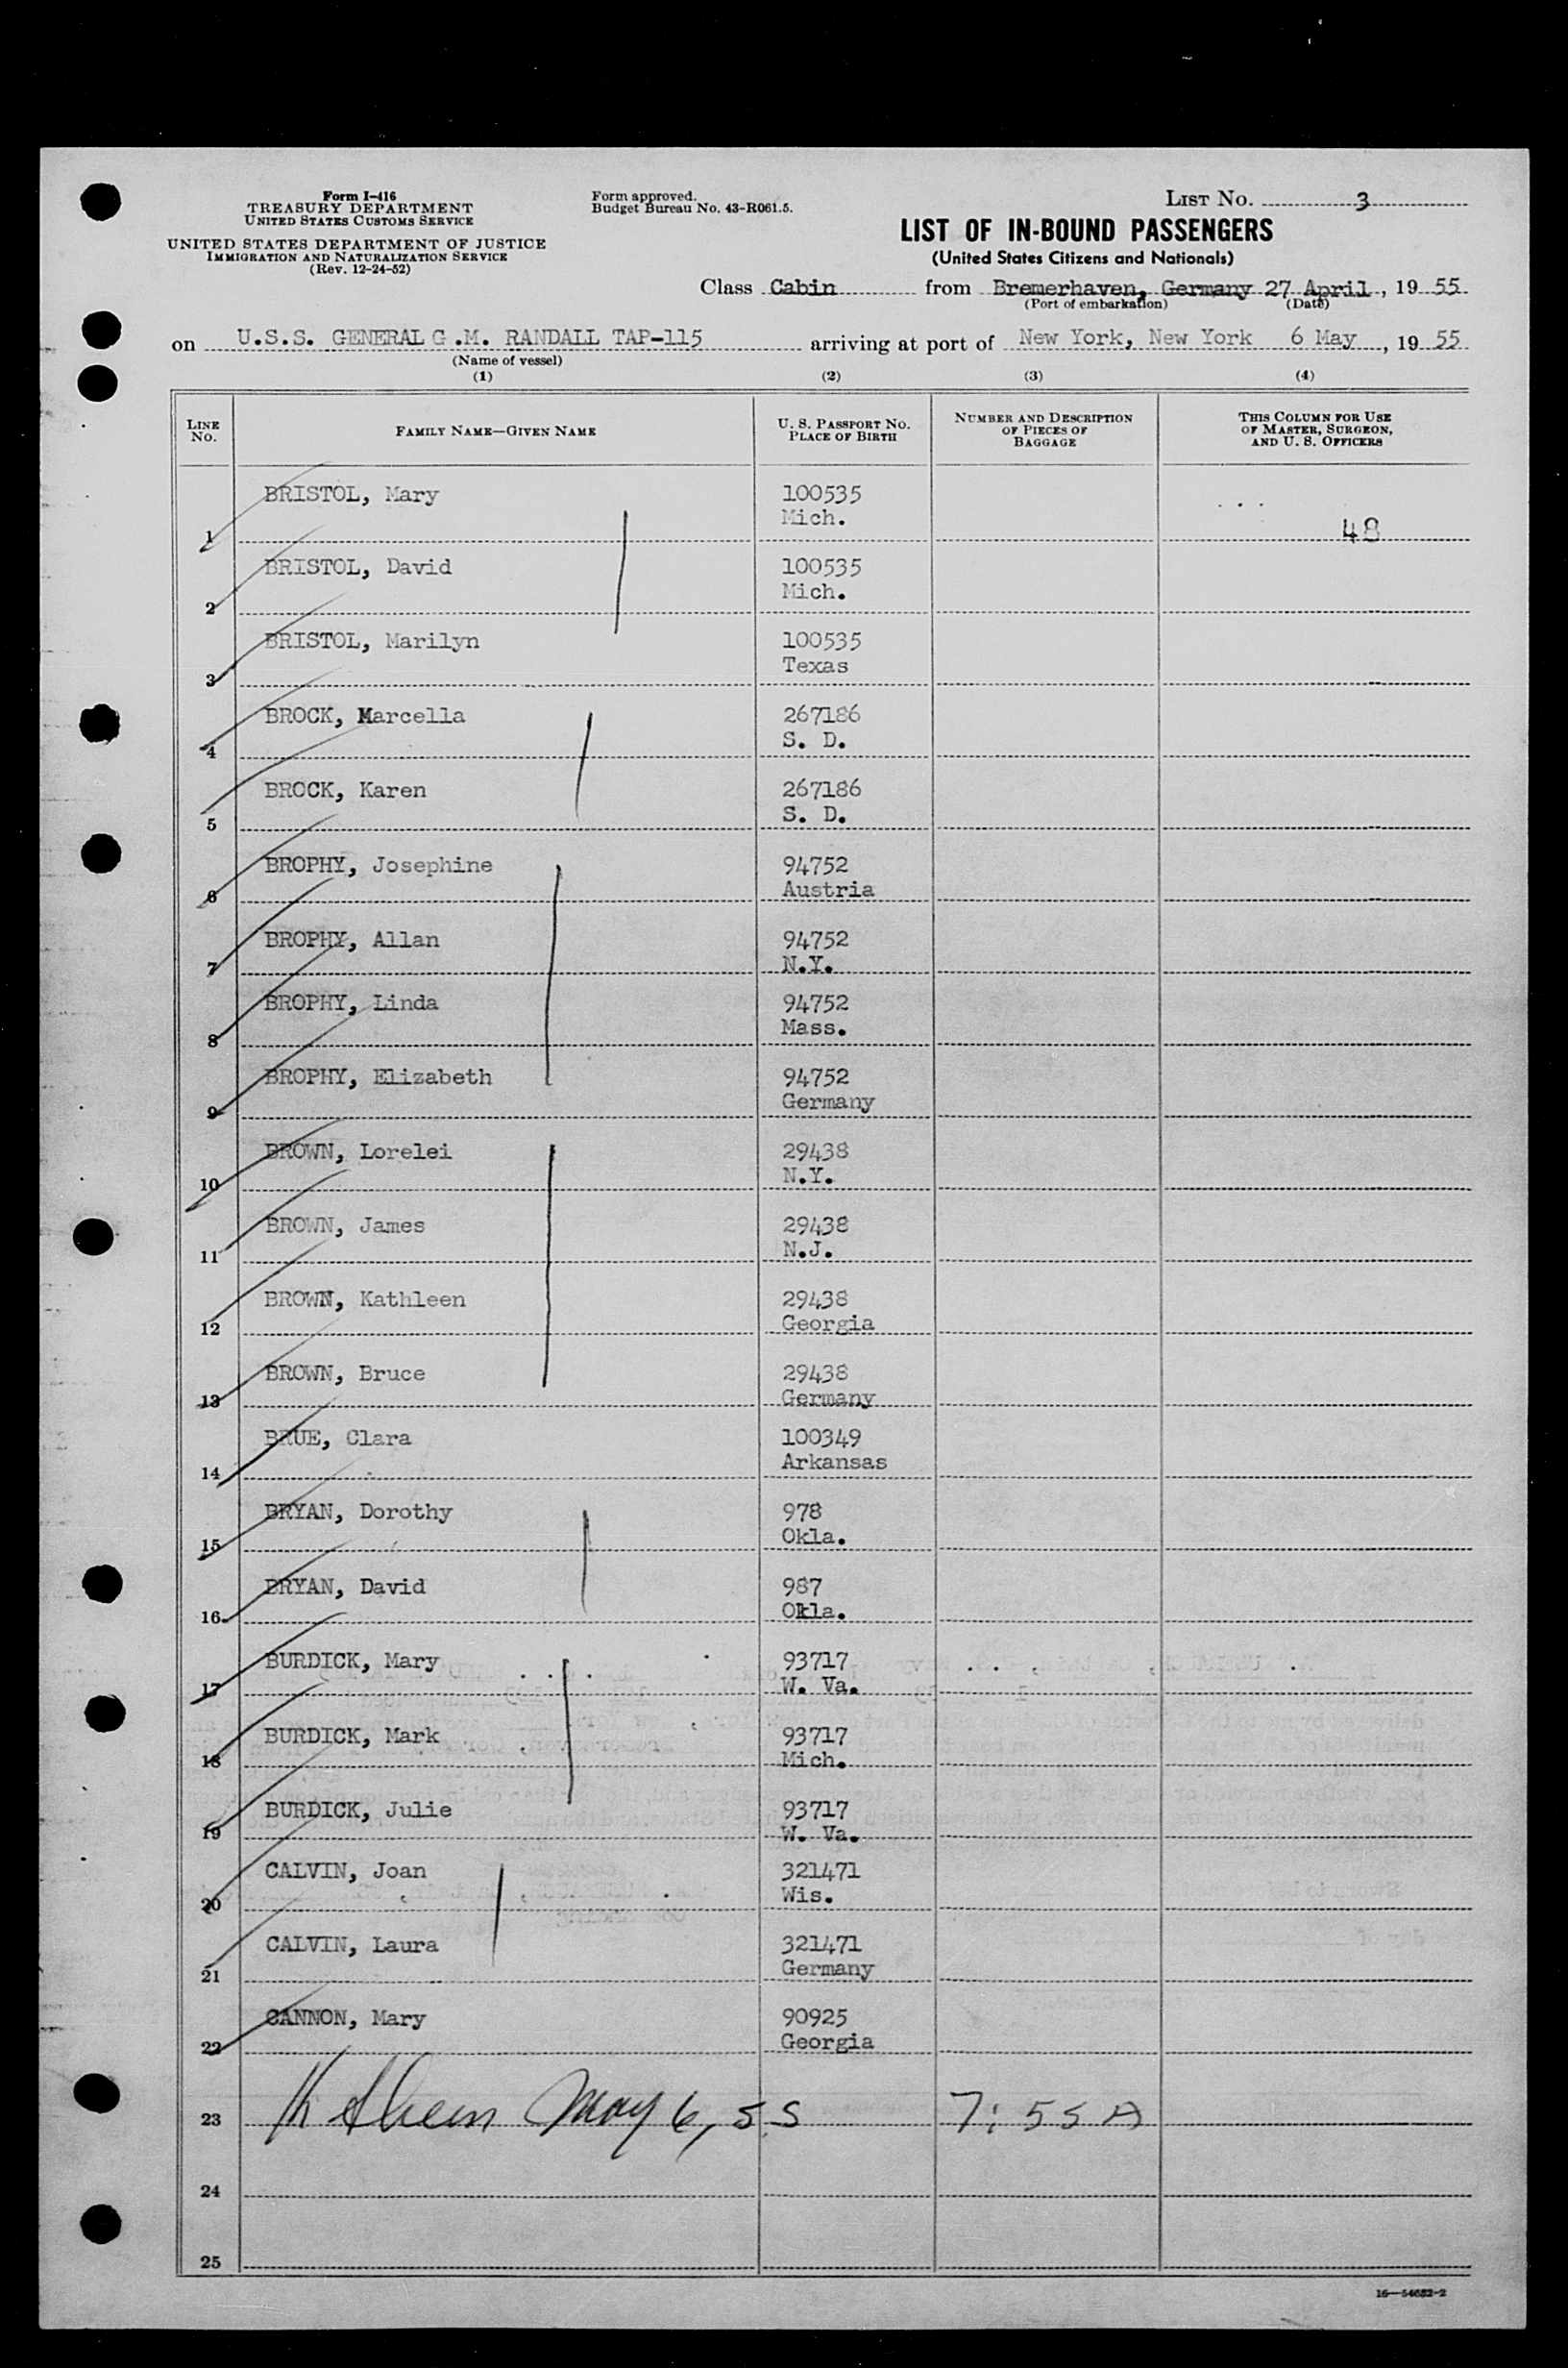 Form I-416
TREASURY DEPARTMENT
UNITED STATES CUSTOMS SERVICE
UNITED STATES DEPARTMENT OF JUSTICE
IMMIGRATION AND NATURALIZATION SERVICE
(Rev. 12-24-52)
Form approved.
Budget Bureau No. 43-R061.5.
LIST NO. 3
LIST OF IN-BOUND PASSENGERS
(United States Citizens and Nationals)
Class Cabin from Bremerhaven, Germany 27 April, 19 55
(Port of embarkation) (Date)
on U.S.S. GENERAL G.M. RANDALL TAP-115 arriving at port of New York, New York 6 May, 19 55
(Name of vessel)
(1) (2) (3) (4)
LINE NO. FAMILY NAME—GIVEN NAME U. S. PASSPORT NO. PLACE OF BIRTH NUMBER AND DESCRIPTION OF PIECES OF BAGGAGE THIS COLUMN FOR USE OF MASTER, SURGEON, AND U. S. OFFICERS
1 BRISTOL, Mary 100535
Mich. 48
2 BRISTOL, David 100535
Mich.
3 BRISTOL, Marilyn 100535
Texas
4 BROCK, Marcella 267186
S. D.
5 BROCK, Karen 267186
S. D.
6 BROPHY, Josephine 94752
Austria
7 BROPHY, Allan 94752
N.Y.
8 BROPHY, Linda 94752
Mass.
9 BROPHY, Elizabeth 94752
Germany
10 BROWN, Lorelei 29438
N.Y.
11 BROWN, James 29438
N.J.
12 BROWN, Kathleen 29438
Georgia
13 BROWN, Bruce 29438
Germany
14 BRUE, Clara 100349
Arkansas
15 BRYAN, Dorothy 978
Okla.
16 BRYAN, David 987
Okla.
17 BURDICK, Mary 93717
W. Va.
18 BURDICK, Mark 93717
Mich.
19 BURDICK, Julie 93717
W. Va.
20 CALVIN, Joan 321471
Wis.
21 CALVIN, Laura 321471
Germany
22 CANNON, Mary 90925
Georgia
23 May 6, 55 7:55 A
24
25
16—54682-2